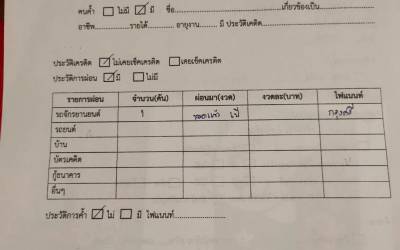 คนค้ำ ☐ ไม่มี ☑ มี ชื่อ..........เกี่ยวข้องเป็น..........
อาชีพ..........รายได้.......... อายุงาน....... มี ประวัติเครดิต..........
ประวัติเครดิต ☑ ไม่เคยเช็คเครดิต ☐ เคยเช็คเครดิต
ประวัติการผ่อน ☑ มี ☐ ไม่มี
รายการผ่อน จำนวน(คัน) ผ่อนมา(งวด) งวดละ(บาท) ไฟแนนท์
รถจักรยานยนต์ 1 กรุงศรี
รถยนต์
บ้าน
บัตรเครดิต
กู้ธนาคาร
อื่นๆ
ประวัติการค้ำ ☑ ไม่ ☐ มี ไฟแนนท์..........